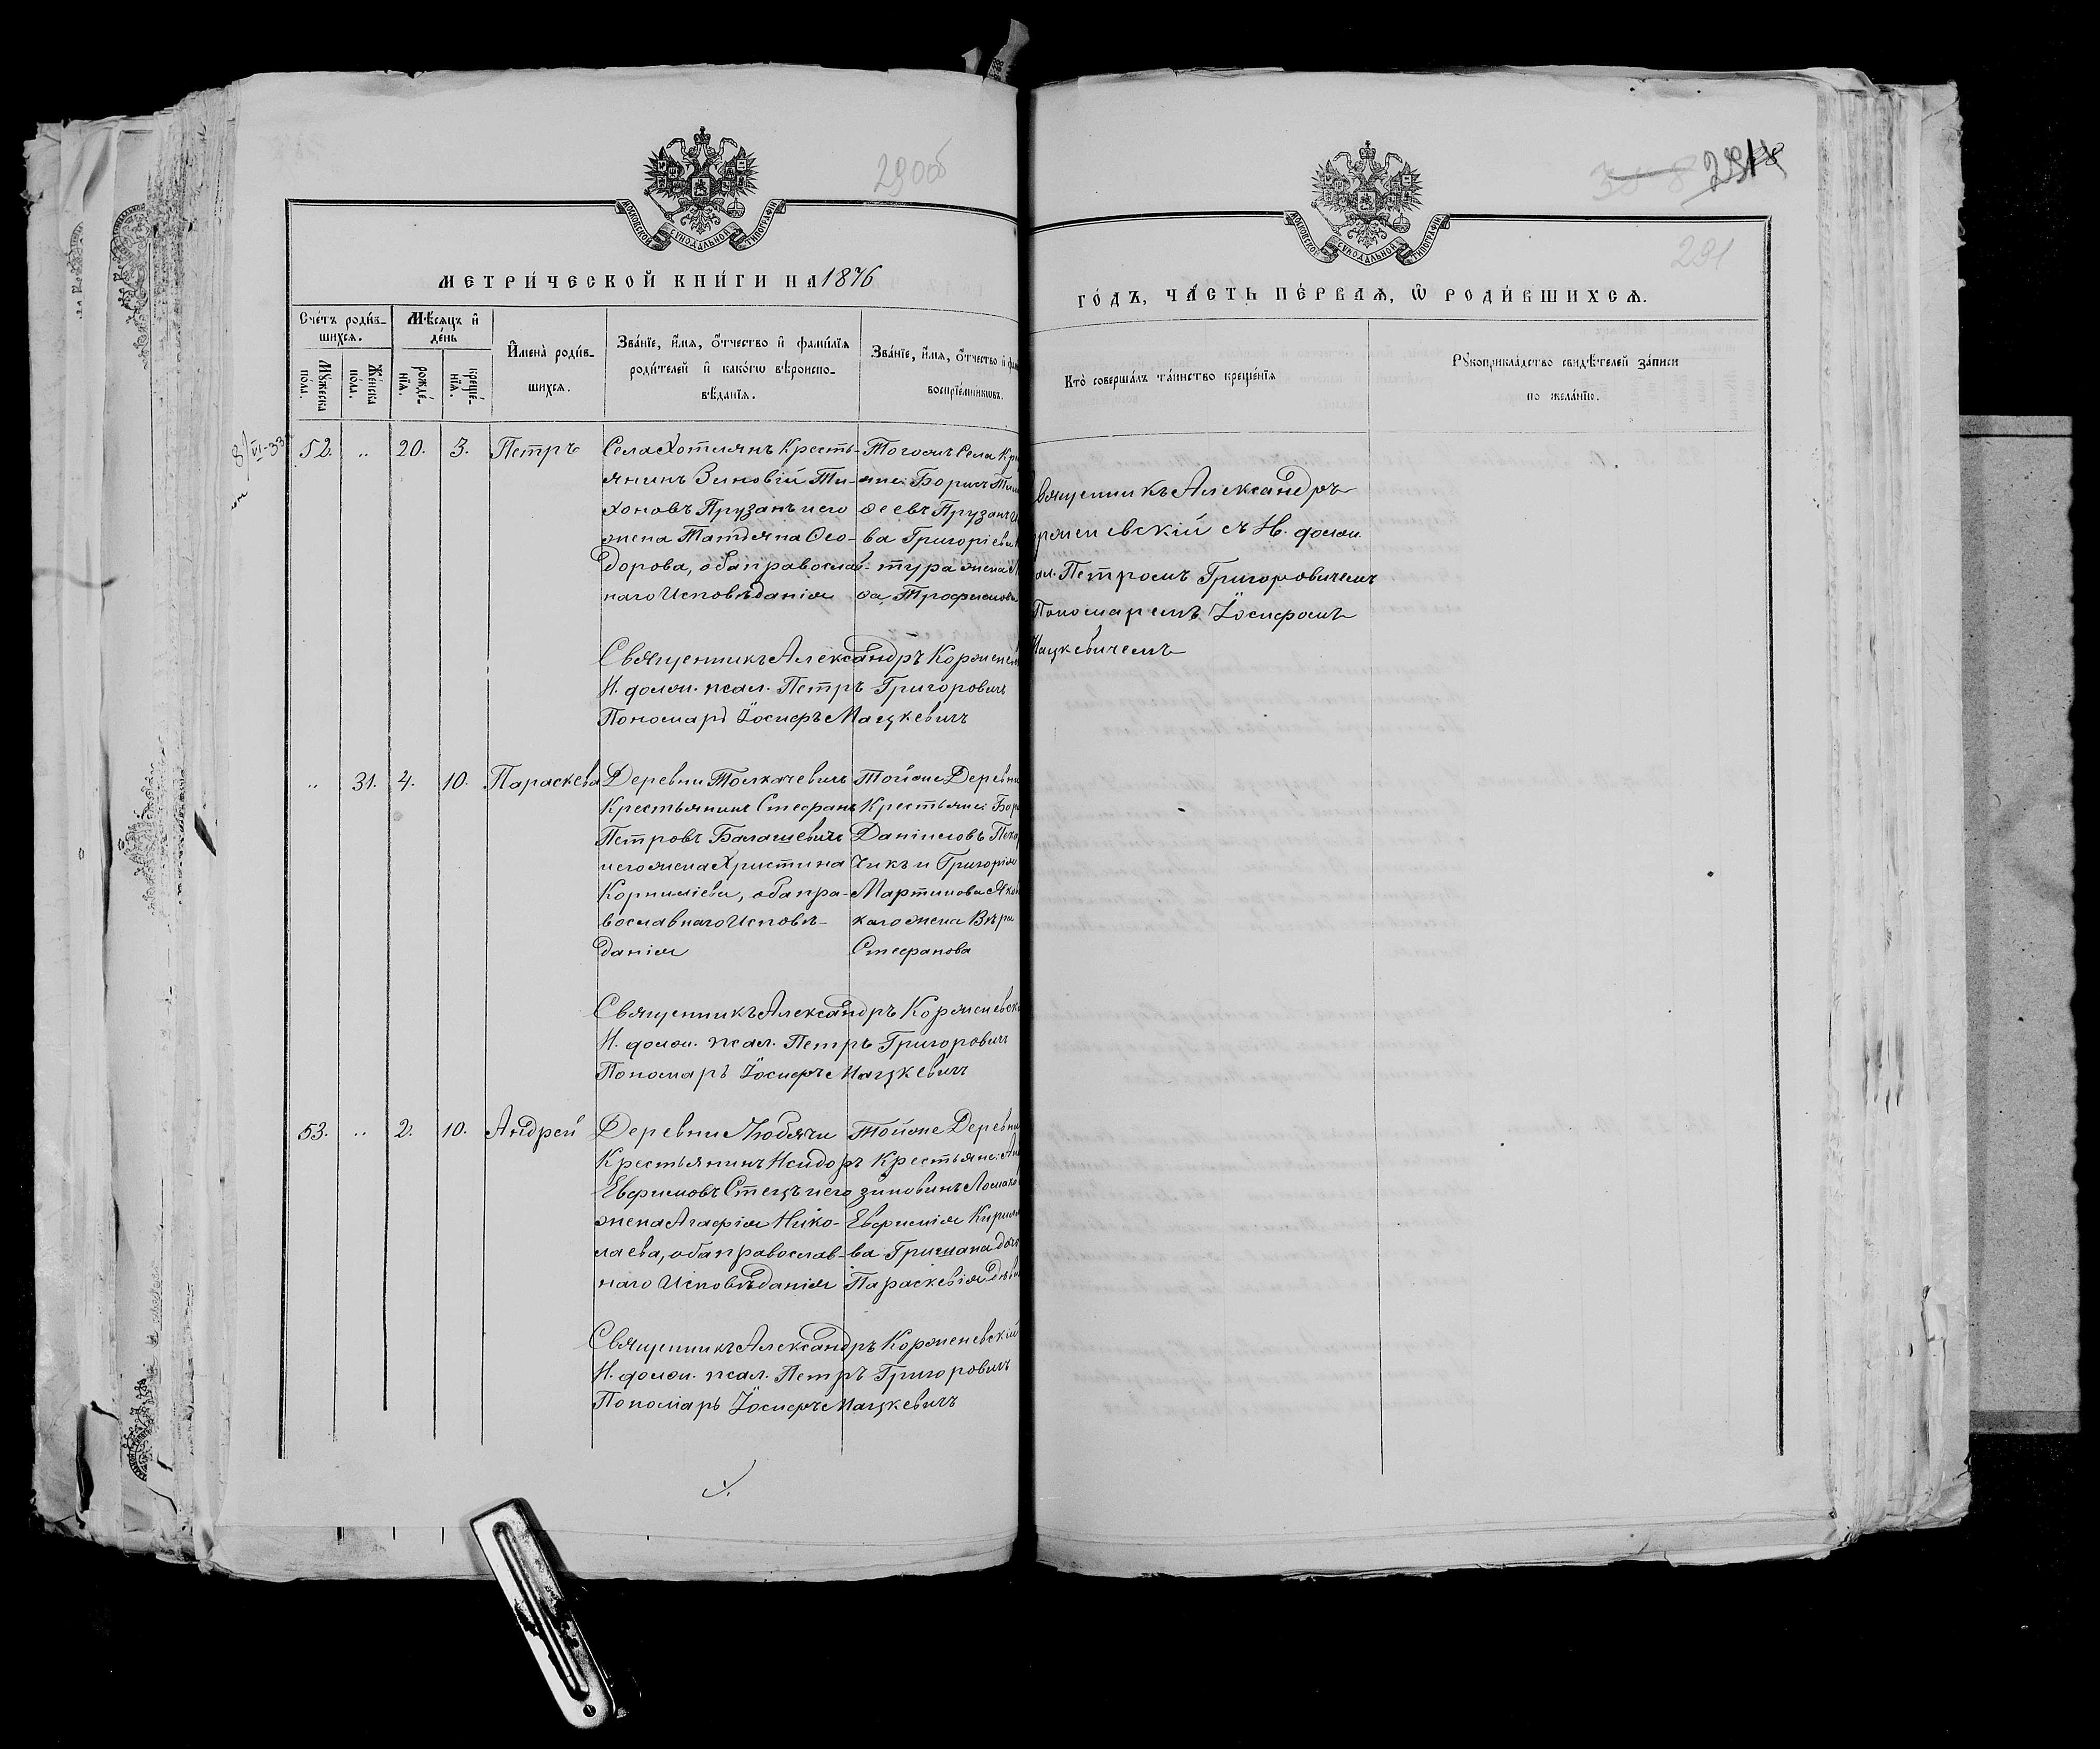 290об
МОСКОВСКОЙ СУНОДАЛЬНОЙ ТИПОГРАФІИ
МЕТРИ́ЧЕСКОЙ КНИ́ГИ НА 1876
Сче́тъ роди́в-
шихся.
Мѣ́сяцъ и҆
де́нь
Мꙋ́жеска
по́ла.
Же́нска
по́ла.
рожде́-
нїѧ.
креще́-
нїѧ.
И҆мена̀ роди́в-
шихся.
Зва́нїе, и҆́мя, ѻ҆́тчество и҆ фами́лїя
роди́телей и҆ како́гѡ вѣроиспо-
вѣ́данїя.
Зва́нїе, и҆́мя, ѻ҆́тчество и҆
воспрїе́мникѡвъ.
52. .. 20. 3. Петръ
Села Хотлянъ Кресть-
янинъ Зиновій Ти-
хоновъ Прузанъ и его
жена Татьяна Ѳео-
дорова, оба православ-
наго Исповѣданія
Тогожъ Села
яне: Борисъ
ѳеевъ Прузанъ
ва Григоріева
тура жена
Трофимова
Священникъ Александръ
И. долж. псал. Петръ Григоровичъ
Пономарь Іосифъ Мацкевичъ
.. 31. 4. 10. Параскева
Деревни Толкачевичъ
Крестьянинъ Стефанъ
Петровъ Балашевичъ
и его жена Христина
Корниліева, оба пра-
вославнаго Исповѣ-
данія
Тойже Деревни
Крестьяне:
Даніиловъ
чикъ и Григорія
Мартинова
каго жена Вѣра
Стефанова
Священникъ Александръ Корженевскій
И. долж. псал. Петръ Григоровичъ
Пономарь Іосифъ Мацкевичъ
53. .. 2. 10. Андрей
Деревни Любячи
Крестьянинъ Исидоръ
Евфимовъ Стецъ и его
жена Агафія Нико-
лаева, оба православ-
наго Исповѣданія
Тойже Деревни
Крестьяне:
Евфимія
ва Гришана
Параскевія
Священникъ Александръ Корженевскій
И. долж. псал. Петръ Григоровичъ
Пономарь Іосифъ Мацкевичъ
291
МОСКОВСКОЙ СУНОДАЛЬНОЙ ТИПОГРАФІИ
ГО́ДЪ, ЧА́СТЬ ПЕ́РВАЯ, Ѽ РОДИ́ВШИХСЯ.
Кто̀ соверша́лъ та́инство креще́нїя
Рꙋкоприкла́дство свидѣ́телей за́писи
по жела́нїю.
Александръ
съ И. долж.
Петромъ Григоровичемъ
Пономаремъ Іосифомъ
Мацкевичемъ